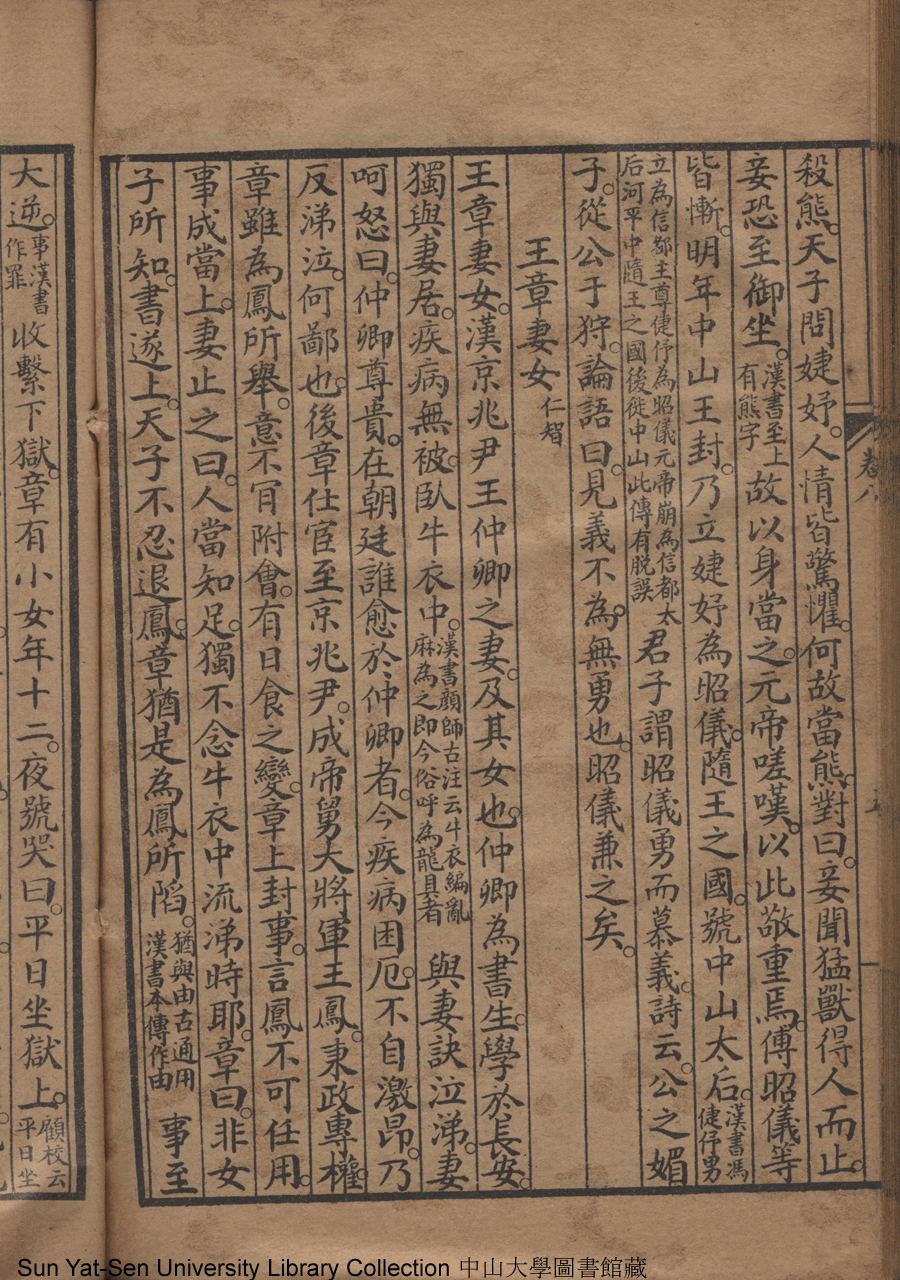 殺熊。天子問婕妤。人情皆驚懼。何故當熊。對曰。妾聞猛獸得人而止。
妾恐至御坐。漢書至上有熊字故以身當之。元帝嗟嘆。以此敬重焉。傅昭儀等
皆慚。明年中山王封。乃立婕妤為昭儀。隨王之國。號中山太后。漢書馮倢伃男
立為信都王尊倢伃為昭儀元帝崩為信都太后河平中隨王之國後徙中山此傳有脫誤君子謂昭儀勇而慕義。詩云。公之媚
子。從公于狩。論語曰。見義不為。無勇也。昭儀兼之矣。
王章妻女仁智
王章妻女。漢京兆尹王仲卿之妻。及其女也。仲卿為書生。學於長安。
獨與妻居。疾病無被。臥牛衣中。漢書顏師古注云牛衣編亂麻為之即今俗呼為龍具者與妻訣泣涕。妻
呵怒曰。仲卿尊貴。在朝廷誰愈於仲卿者。今疾病困厄。不自激昂。乃
反涕泣。何鄙也。後章仕宦至京兆尹。成帝舅大將軍王鳳。秉政專權。
章雖為鳳所舉。意不肎附會。有日食之變。章上封事。言鳳不可任用。
事成當上。妻止之曰。人當知足。獨不念牛衣中流涕時耶。章曰。非女
子所知。書遂上。天子不忍退鳳。章猶是為鳳所陷。猶與由古通用漢書本傳作由事至
大逆。事漢書作罪收繫下獄。章有小女年十二。夜號哭曰。平日坐獄上。顧校云平日坐
卷八
五
Sun Yat-Sen University Library Collection 中山大學圖書館藏